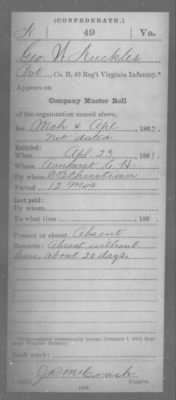 (CONFEDERATE.)
49 Va.
Geo. W
Pvt, Co. B, 49 Reg't Virginia Infantry.*
Appears on
Company Muster Roll
of the organization named above,
for Mch & Apl 186
Not dated
Enlisted:
When Apl 23 186
Where Amherst C. H.
By whom Christian
Period 12 Mos
Last paid:
By whom
To what time 186
Present or absent Absent
Remarks: Absent without
leave about 20 days.
Book mark:
Copyist.